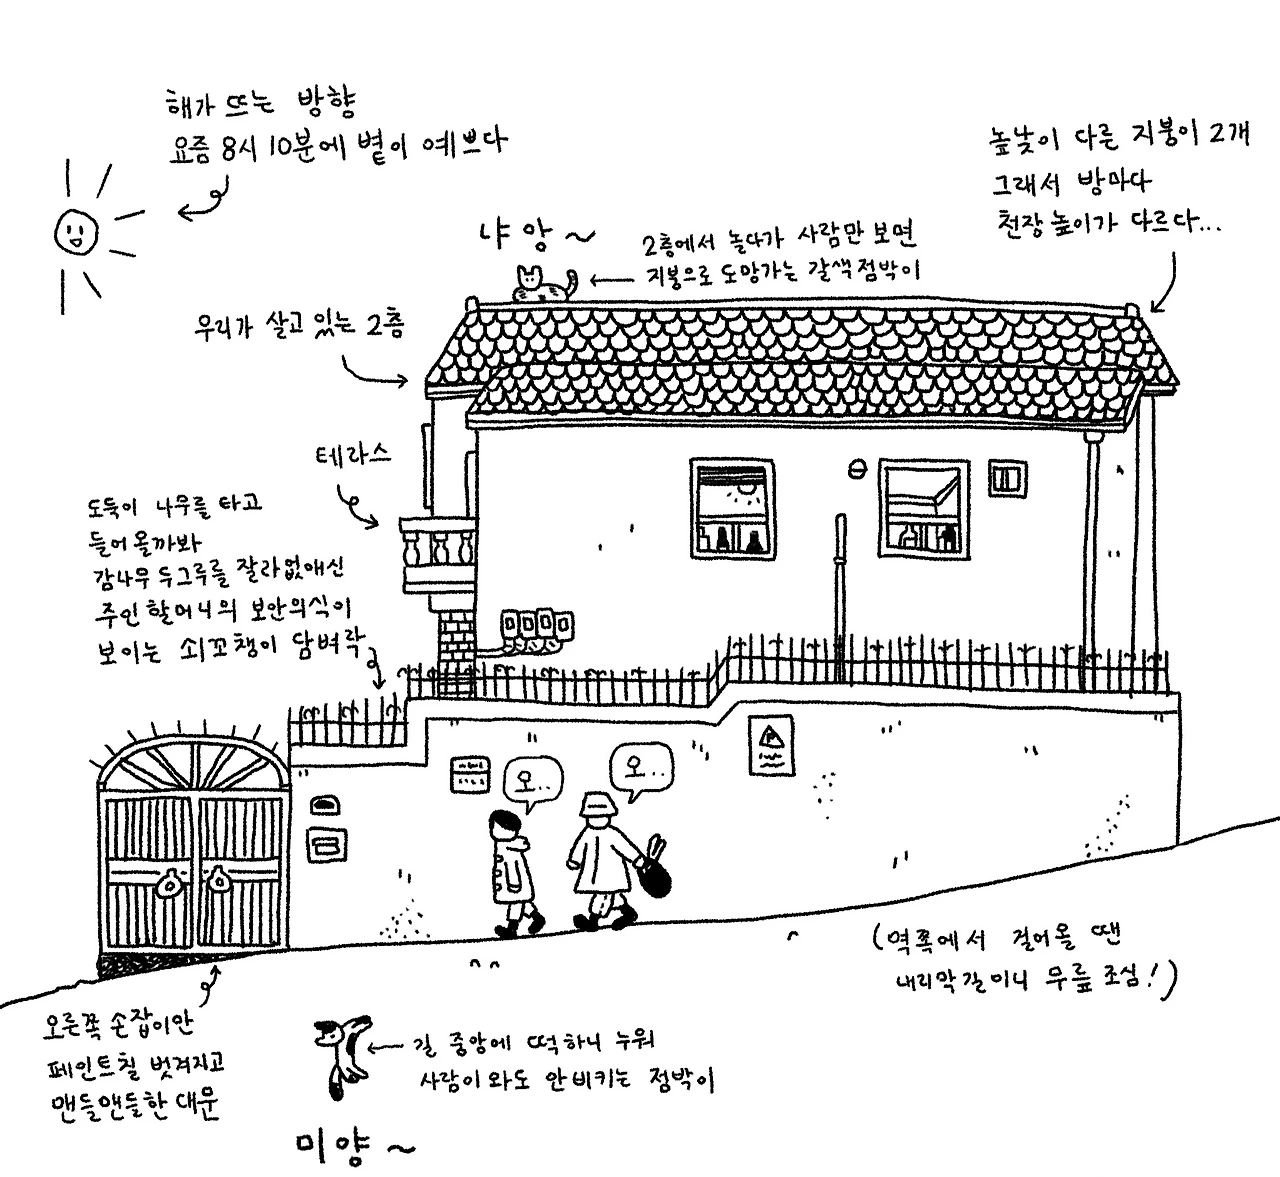 해가 뜨는 방향
요즘 8시 10분에 볕이 예쁘다
높낮이 다른 지붕이 2개
그래서 방마다
천장 높이가 다르다...
냐앙~
2층에서 놀다가 사람만 보면
지붕으로 도망가는 갈색점박이
우리가 살고 있는 2층
테라스
도둑이 나무를 타고
들어올까봐
감나무 두그루를 잘라없애신
주인할머니의 보안의식이
보이는 쇠꼬챙이 담벼락
오..
오..
P
(역쪽에서 걸어올 땐
내리막길이니 무릎 조심!)
오른쪽 손잡이만
페인트칠 벗겨지고
맨들맨들한 대문
길 중앙에 떡하니 누워
사람이 와도 안비키는 점박이
미양~